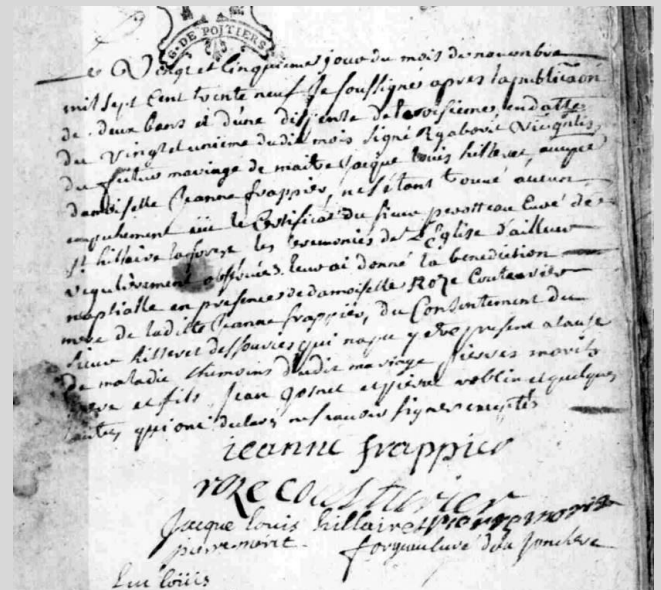 G. DE POITIERS
Le Vingt et Cinquieme jour du mois de novembre
mil sept Cent trente neuf Je soussigné apres la publication
de deux bans et d'une dispense de troisieme en datte
du vingt et unieme dudit mois signé Rgaborit Vicgnlis
du futur mariage de maitre Jacque Louis hilleret avecque
damoiselle Jeanne frappier, ne s'étant trouvé aucun
empechement vüe le Certificat du sieur perotteau Curé de
st hillaire laforest les ceremonies de L'Eglise d'ailleur
regulierement observées leur ai donné la benediction
nuptialle en presence de damoiselle Roze Couturier
mere de ladite Jeanne frappier, du Consentement du
sieur hilleret qui na pu y etre present a Cause
de maladie themoins dudit mariage pierres morits
pere et fils, Jean et pierre roblin et quelques
autres qui ont declaré ne scavoir signer exceptés
jeanne frappier
roze cousturier
Jacque louis hillairet pierre morit
pierre morit